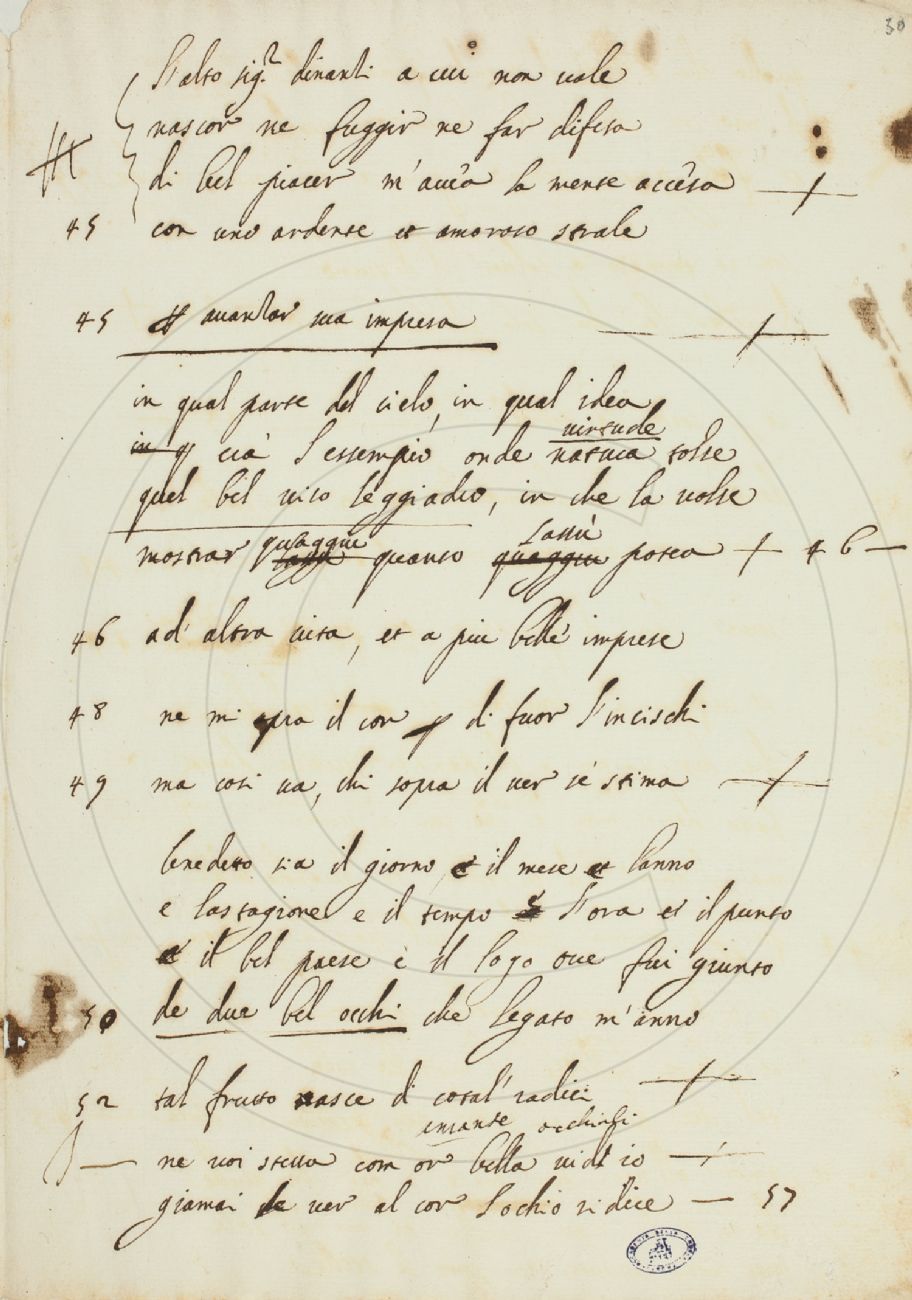 30
L'alto sig.r dinanzi a cui non vale
nascor ne fuggir ne far difesa
di bel piacer m'avea la mense accesa
45 con uno ardense et amoroso strale
45 avanzar sua impresa
in qual parse del cielo, in qual idea
virtude
in q era l'essempio onde natura tolse
quel bel viso leggiadro, in che la volse
quaggiu lassù
mostrar lassu quanto quaggiu potea 46
46 ad' altra vita, et a piu belle imprese
48 ne mi opra il cor di fuor l'incischi
49 ma cosi va, chi sopra il ver s'estima
benedetto sia il giorno, e il mese et l'anno
e la stagione e il tempo l'ora et il punto
et il bel paese e il logo ove fui giunto
50 de due bel occhi che legato m'anno
52 tal frutto nasce di cotal' radici
ne voi stessa com or bella vid' io
giamai de ver al cor l'ochio ridice 57